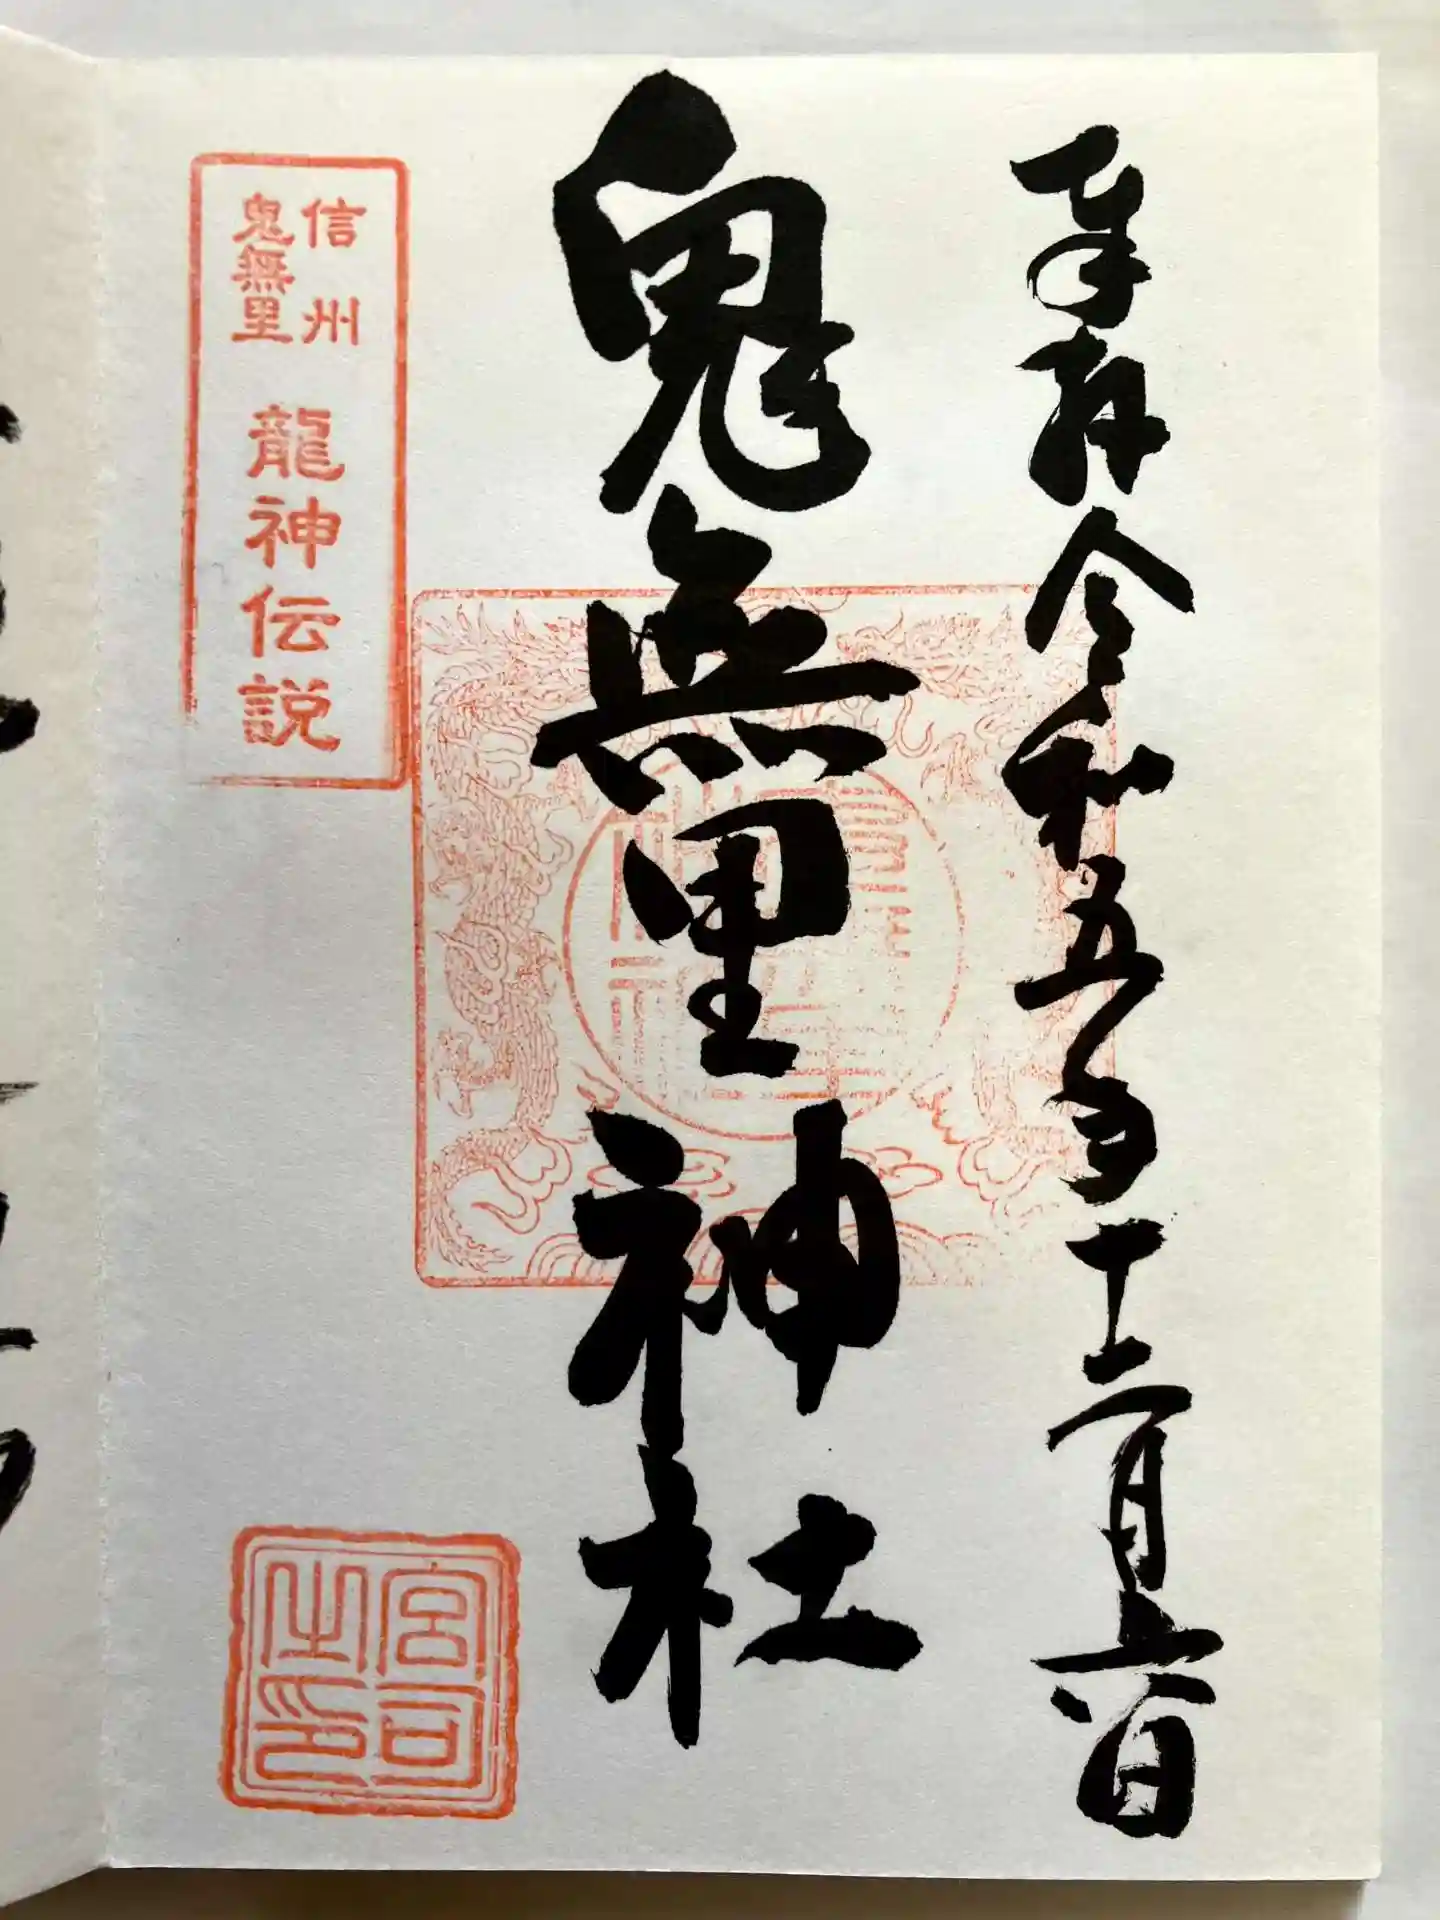 奉拝 令和五年十二月六日
鬼無里神社
信州
鬼無里
龍神伝説
宮司
之印